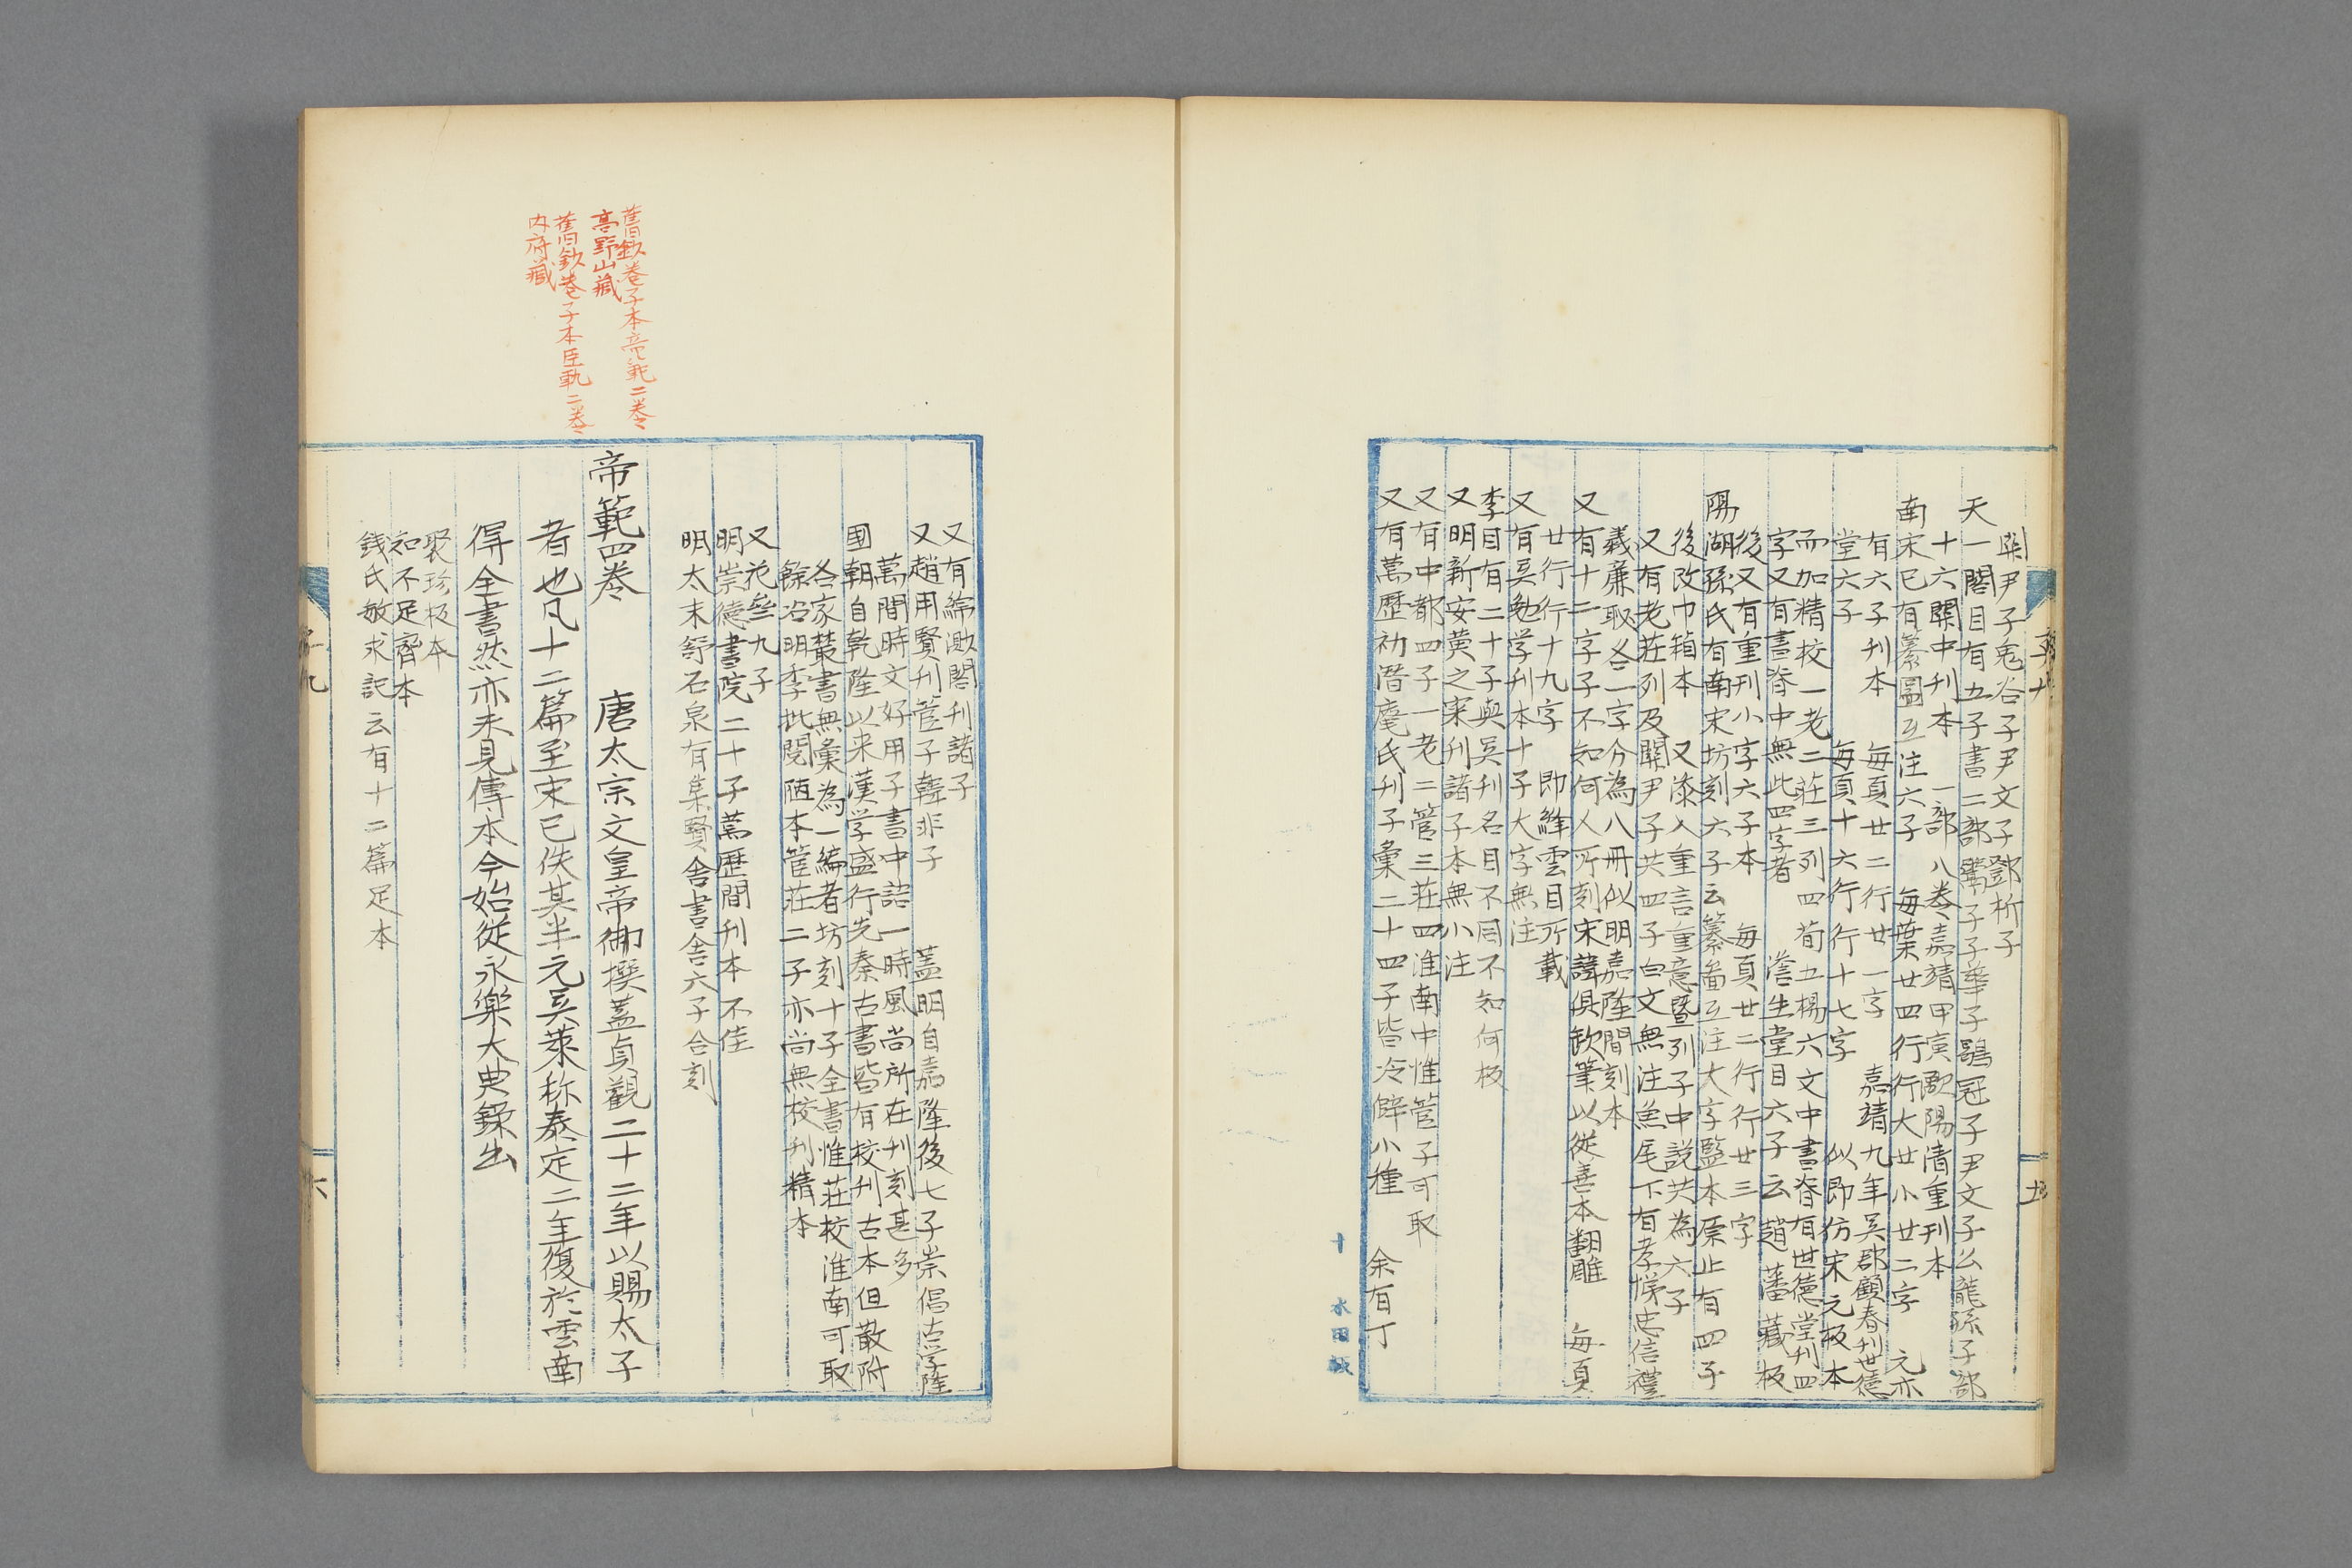 關尹子鬼谷子尹文子鄧析子
天一閣目有五子書二部鬻子子華子鶡冠子尹文子公龍孫子部
十六關中刊本 一部八卷嘉靖甲寅歐陽清重刊本
南宋已有纂圖互注六子 每葉廿四行行大廿小廿二字 元亦
有六子刊本 每頁廿二行廿一字 嘉靖九年吳郡顧春刊世德
堂六子 每頁十六行行十七字 以即仿宋元板本
而加精校一老二莊三列四荀五楊六文中書脊有世德堂刊四
字又有書脊中無此四字者 澹生堂目六子云趙藩藏板
後又有重刊小字六子本 每頁廿二行行廿三字
陽湖孫氏有南宋坊刻六子云纂啚互注大字監本原止有四子
後改巾箱本 又添入重言重意暨列子中説共為六子
又有老莊列及關尹子共四子白文無注魚尾下有孝悌忠信禮
義廉取各一字分為八冊似明嘉隆間刻本
又有十二字子不知何人所刻宋諱俱欽筆以從善本翻雕 每頁
廿行行十九字 即絳雲目所載
又有吳勉学刊本十子大字無注
李目有二十子與吳刊名目不同不知何板
又明新安黄之寀刊諸子本無小注
又有中都四子一老二管三莊四淮南中惟管子可取
又有萬歷初潛菴氏刊子彙二十四子皆冷僻小種 余有丁
十 水田誠
又有綿渺閣刊諸子
又趙用賢刊管子韓非子 蓋明自嘉隆後七子崇倡古学隆
萬間時文好用子書中語一時風尚所在刊刻甚多
國朝自乾隆以来漢学盛行先秦古書皆有校刊古本但散附
各家叢書無彙為一編者坊刻十子全書惟莊校淮南可取
餘沿明李批閱陋本管莊二子亦尚無校刊精本
又花㕘九子
明崇德書院二十子萬歷間刊本不佳
明太末舒石泉有集賢舍書舍六子合刻
帝範四卷 唐太宗文皇帝御撰蓋貞觀二十二年以賜太子
者也凡十二篇至宋已佚其半元吳萊称泰定二年復於雲南
得全書然亦未見傳本今始從永樂大典錄出
聚珍板本
知不足齋本
錢氏敏求記云有十二篇足本
舊鈔卷子本帝範二卷
高野山藏
舊鈔卷子本臣軌二卷
内府藏